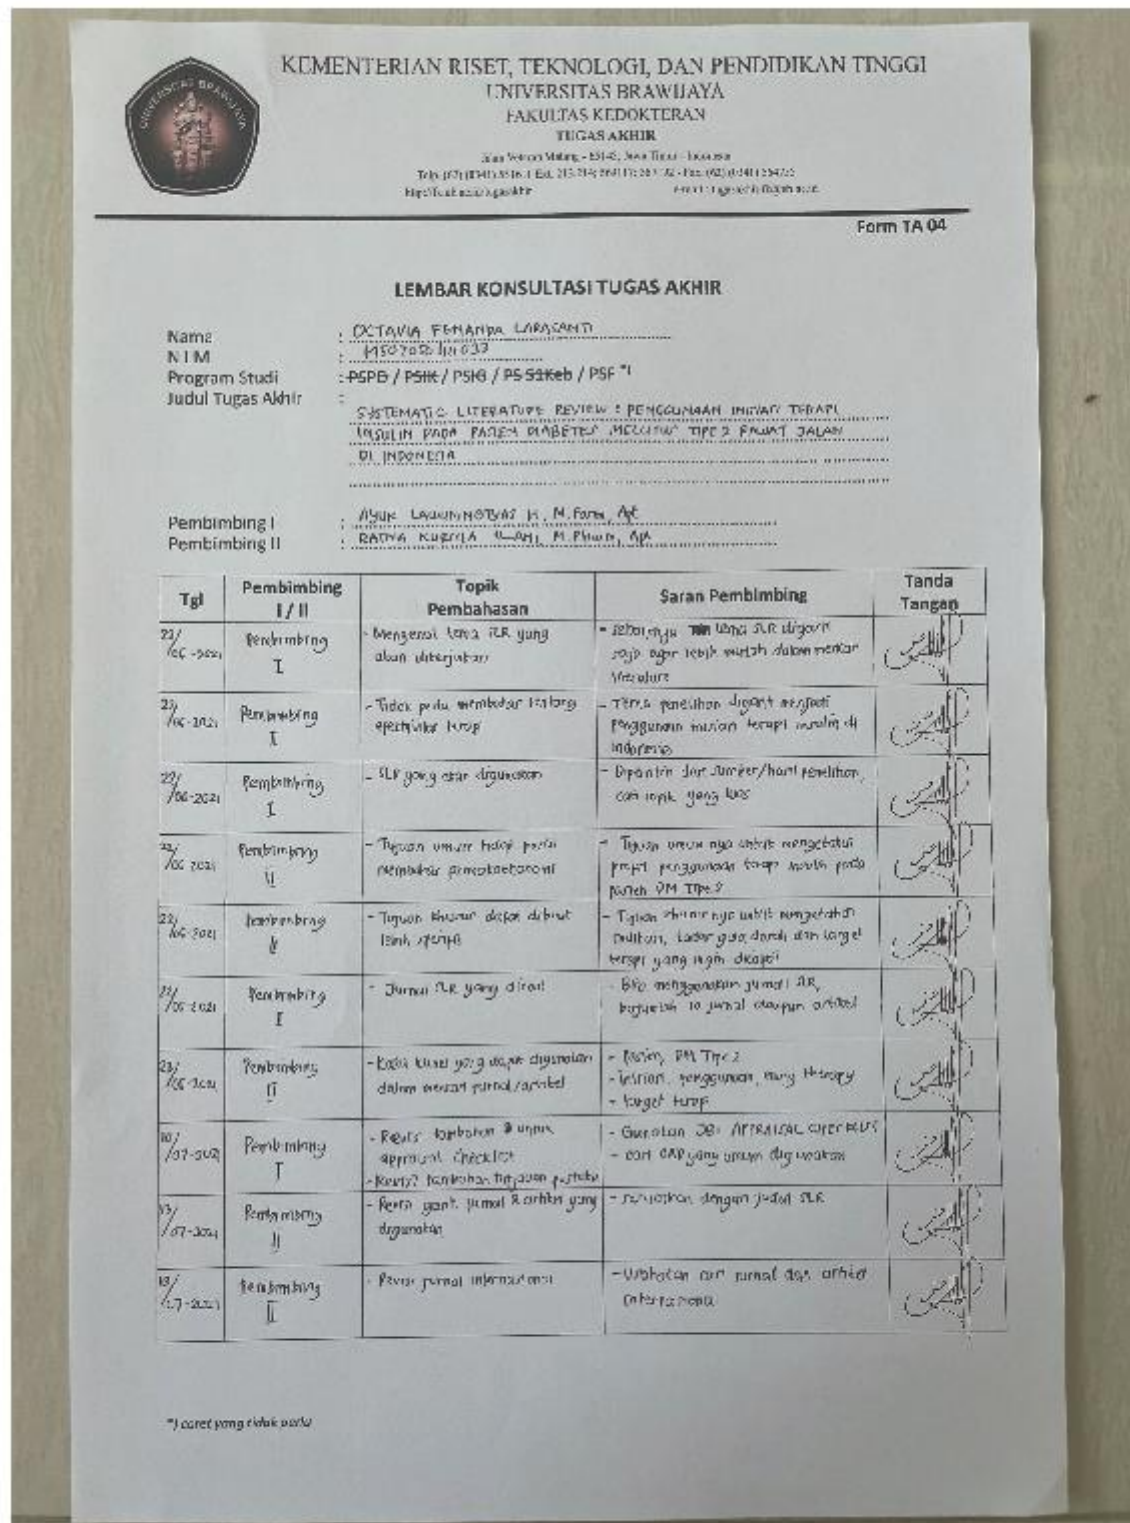 UNIVERSITAS BRAWIJAYA
KEMENTERIAN RISET, TEKNOLOGI, DAN PENDIDIKAN TINGGI
UNIVERSITAS BRAWIJAYA
FAKULTAS KEDOKTERAN
TUGAS AKHIR
Jalan Veteran Malang - 65145, Jawa Timur - Indonesia
Form TA 04
LEMBAR KONSULTASI TUGAS AKHIR
Nama : OCTAVIA FENANDA LARASANTI
NIM :
Program Studi : PSPD / PSIK / PSIG / PS S1Keb / PSF *)
Judul Tugas Akhir :
SYSTEMATIC LITERATURE REVIEW : PENGGUNAAN INISIASI TERAPI
INSULIN PADA PASIEN DIABETES MELLITUS TIPE 2 RAWAT JALAN
DI INDONESIA
Pembimbing I : AYUK H, M.Farm, Apt
Pembimbing II : RATNA KURNIA ILLAHI, M.Pharm, Apt
Tgl Pembimbing I / II Topik Pembahasan Saran Pembimbing Tanda Tangan
22/06-2021 Pembimbing I - Mengenai tema SLR yang
akan dikerjakan
- Sebaiknya tema SLR diganti
saja agar lebih mudah dalam mencari
literature
22/06-2021 Pembimbing I - Tidak perlu membahas tentang
efektivitas terapi
- Tema penelitian diganti menjadi
penggunaan inisiasi terapi insulin di
Indonesia
22/06-2021 Pembimbing I - SLR yang akan digunakan
- dari sumber/hasil penelitian,
cari topik yang luas
22/06-2021 Pembimbing II - Tujuan umum tidak perlu
membahas farmakoekonomi
- Tujuan umum nya untuk mengetahui
profil penggunaan terapi insulin pada
pasien DM Tipe 2
22/06-2021 Pembimbing II - Tujuan khusus dapat dibuat
lebih spesifik
- Tujuan khusus nya untuk mengetahui
kadar gula darah dan target
terapi yang ingin dicapai
22/06-2021 Pembimbing I - Jurnal SLR yang dicari
- Bisa menggunakan jurnal SLR,
berjumlah 10 jurnal ataupun artikel
23/06-2021 Pembimbing II - Kata kunci yang dapat digunakan
dalam mencari jurnal/artikel
- Pasien, DM Tipe 2
- Inisiasi, penggunaan, therapy
- target terapi
10/07-2021 Pembimbing I - Revisi tambahan untuk
appraisal checklist
- Revisi tambahan tinjauan pustaka
- Gunakan JBI APPRAISAL CHECKLIST
- cari yang umum digunakan
13/07-2021 Pembimbing II - Revisi ganti jurnal & artikel yang
digunakan
- Sesuaikan dengan judul SLR
13/07-2021 Pembimbing II - Revisi jurnal internasional
- Usahakan cari jurnal dan artikel
internasional
*) coret yang tidak perlu